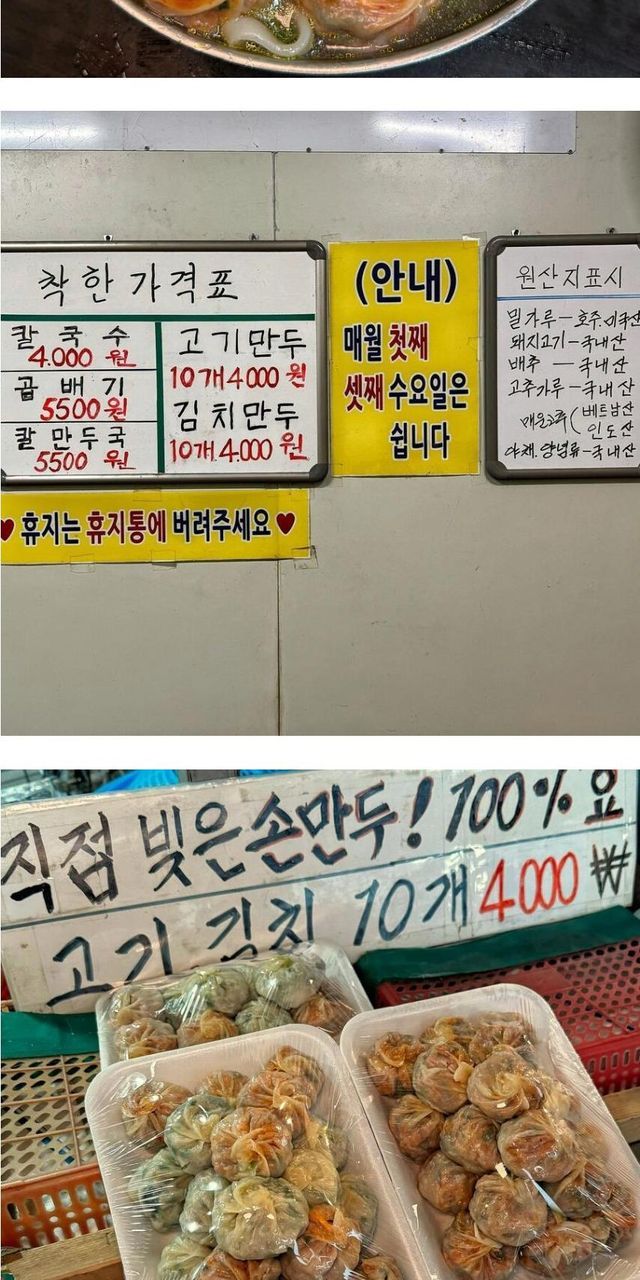 착한가격표
칼국수
4.000 원
곱배기
5500원
칼만두국
5500 원
고기만두
10개4000 원
김치만두
10개.4.000 원
(안내)
매월 첫째
셋째 수요일은
쉽니다
원산지표시
밀가루-호주.미국산
돼지고기-국내산
배추 -국내산
고추가루-국내산
(베트남산
인도산
야채.양념류-국내산
♥ 휴지는 휴지통에 버려주세요 ♥
직접 빚은손만두! 100%
고기 김치 10개 4.000 ₩